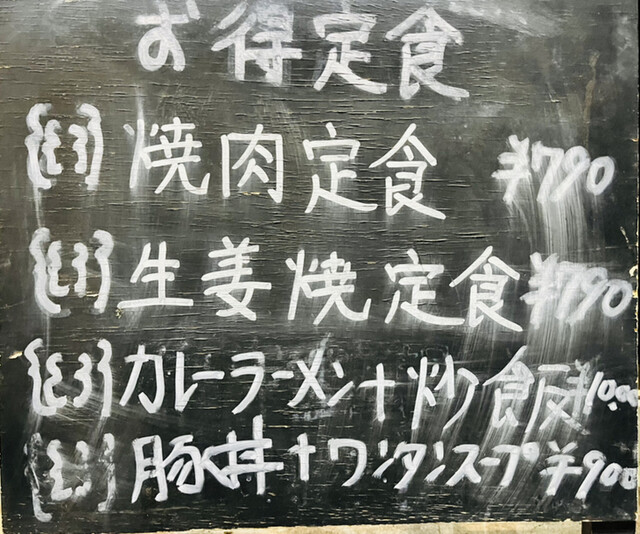 お得定食
焼肉定食 ¥790
生姜焼定食 ¥790
カレーラーメン+炒飯 ¥1000
豚丼+ワンタンスープ ¥900